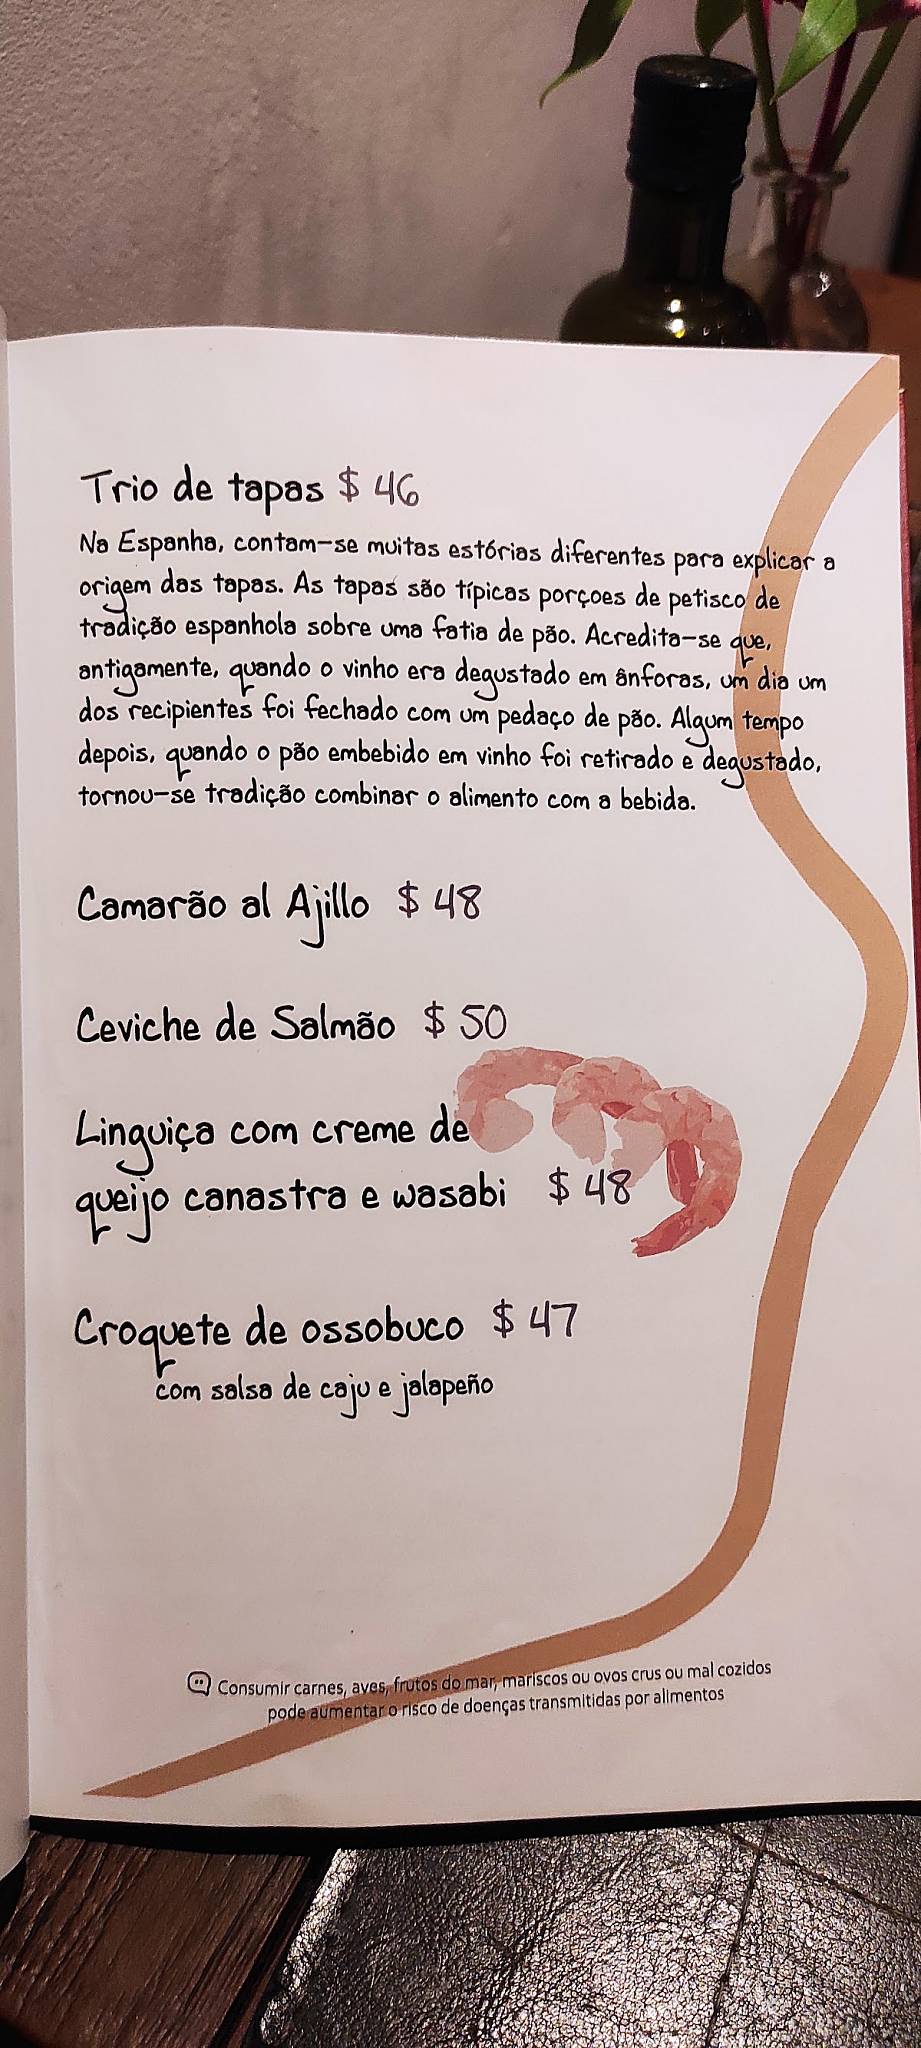 Trio de tapas $ 46
Na Espanha, contam-se muitas estórias diferentes para explicar a
origem das tapas. As tapas são típicas porçoes de petisco de
tradição espanhola sobre uma fatia de pão. Acredita-se que,
antigamente, quando o vinho era degustado em ânforas, um dia um
dos recipientes foi fechado com um pedaço de pão. Algum tempo
depois, quando o pão embebido em vinho foi retirado e degustado,
tornou-se tradição combinar o alimento com a bebida.
Camarão al Ajillo $ 48
Ceviche de Salmão $ 50
Linguiça com creme de
queijo canastra e wasabi $ 48
Croquete de ossobuco $ 47
com salsa de caju e jalapeño
Consumir carnes, aves, frutos do mar, mariscos ou ovos crus ou mal cozidos
pode aumentar o risco de doenças transmitidas por alimentos